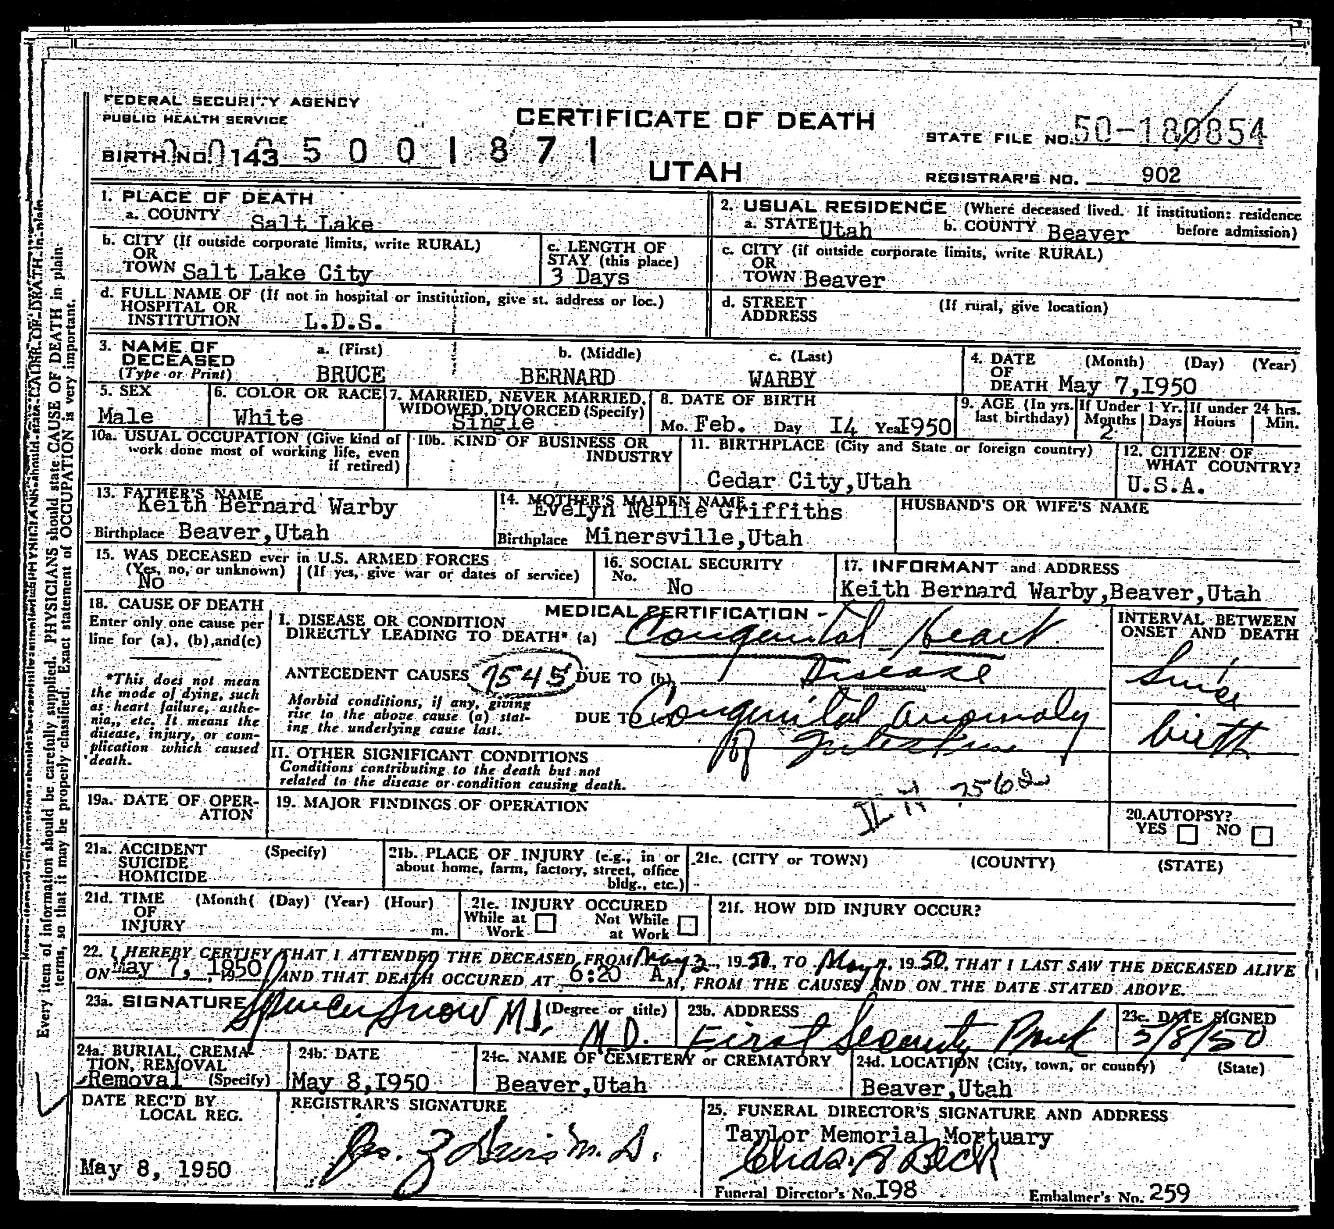 FEDERAL SECURITY AGENCY
PUBLIC HEALTH SERVICE
CERTIFICATE OF DEATH
UTAH
STATE FILE NO. 50-180854
BIRTH NO. 143 5001871
REGISTRAR'S NO. 902
1. PLACE OF DEATH
a. COUNTY Salt Lake
b. CITY (If outside corporate limits, write RURAL)
OR
TOWN Salt Lake City
c. LENGTH OF
STAY (this place)
3 Days
d. FULL NAME OF (If not in hospital or institution, give st. address or loc.)
HOSPITAL OR
INSTITUTION L.D.S.
2. USUAL RESIDENCE (Where deceased lived. If institution: residence
before admission)
a. STATE Utah b. COUNTY Beaver
c. CITY (if outside corporate limits, write RURAL)
OR
TOWN Beaver
d. STREET (If rural, give location)
ADDRESS
3. NAME OF
DECEASED
(Type or Print)
a. (First) b. (Middle) c. (Last)
BRUCE BERNARD WARBY
4. DATE (Month) (Day) (Year)
OF
DEATH May 7,1950
5. SEX
Male
6. COLOR OR RACE
White
7. MARRIED, NEVER MARRIED,
WIDOWED, DIVORCED (Specify)
Single
8. DATE OF BIRTH
Mo. Feb. Day 14 Year 1950
9. AGE (In yrs.
last birthday)
If Under 1 Yr.
Months Days
2
If under 24 hrs.
Hours Min.
10a. USUAL OCCUPATION (Give kind of
work done most of working life, even
if retired)
10b. KIND OF BUSINESS OR
INDUSTRY
11. BIRTHPLACE (City and State or foreign country)
Cedar City,Utah
12. CITIZEN OF
WHAT COUNTRY?
U.S.A.
13. FATHER'S NAME
Keith Bernard Warby
Birthplace Beaver,Utah
14. MOTHER'S MAIDEN NAME
Evelyn Nellie Griffiths
Birthplace Minersville,Utah
HUSBAND'S OR WIFE'S NAME
15. WAS DECEASED ever in U.S. ARMED FORCES
(Yes, no, or unknown) (If yes, give war or dates of service)
No
16. SOCIAL SECURITY
No. No
17. INFORMANT and ADDRESS
Keith Bernard Warby,Beaver,Utah
18. CAUSE OF DEATH
Enter only one cause per
line for (a), (b),and(c)
*This does not mean
the mode of dying, such
as heart failure, asthe-
nia,, etc. It means the
disease, injury, or com-
plication which caused
death.
MEDICAL CERTIFICATION
I. DISEASE OR CONDITION
DIRECTLY LEADING TO DEATH* (a) Congenital Heart
ANTECEDENT CAUSES 7545 DUE TO (b) Disease
Morbid conditions, if any, giving
rise to the above cause (a) stat-
ing the underlying cause last.
DUE TO Congenital anomaly
of Intestine
II. OTHER SIGNIFICANT CONDITIONS
Conditions contributing to the death but not
related to the disease or condition causing death.
7562
INTERVAL BETWEEN
ONSET AND DEATH
Since
birth
19a. DATE OF OPER-
ATION
19. MAJOR FINDINGS OF OPERATION
20. AUTOPSY?
YES NO
21a. ACCIDENT (Specify)
SUICIDE
HOMICIDE
21b. PLACE OF INJURY (e.g., in or
about home, farm, factory, street, office
bldg., etc.)
21c. (CITY or TOWN) (COUNTY) (STATE)
21d. TIME (Month( (Day) (Year) (Hour)
OF
INJURY m.
21e. INJURY OCCURED
While at Work Not While at Work
21f. HOW DID INJURY OCCUR?
22. I HEREBY CERTIFY THAT I ATTENDED THE DECEASED FROM May 2, 1950, TO May 7, 1950, THAT I LAST SAW THE DECEASED ALIVE
ON May 7, 1950 AND THAT DEATH OCCURED AT 6:20 A.M, FROM THE CAUSES AND ON THE DATE STATED ABOVE.
23a. SIGNATURE (Degree or title)
Spencer Snow M.D. M.D.
23b. ADDRESS
First Security Bank
23c. DATE SIGNED
5/8/50
24a. BURIAL, CREMA-
TION, REMOVAL
Removal (Specify)
24b. DATE
May 8,1950
24c. NAME OF CEMETERY or CREMATORY
Beaver,Utah
24d. LOCATION (City, town, or county) (State)
Beaver,Utah
DATE REC'D BY
LOCAL REG.
May 8, 1950
REGISTRAR'S SIGNATURE
M.D.
25. FUNERAL DIRECTOR'S SIGNATURE AND ADDRESS
Taylor Memorial Mortuary
Funeral Director's No. 198 Embalmer's No. 259
Every item of information should be carefully supplied. PHYSICIANS should state CAUSE OF DEATH in plain
terms, so that it may be properly classified. Exact statement of OCCUPATION is very important.